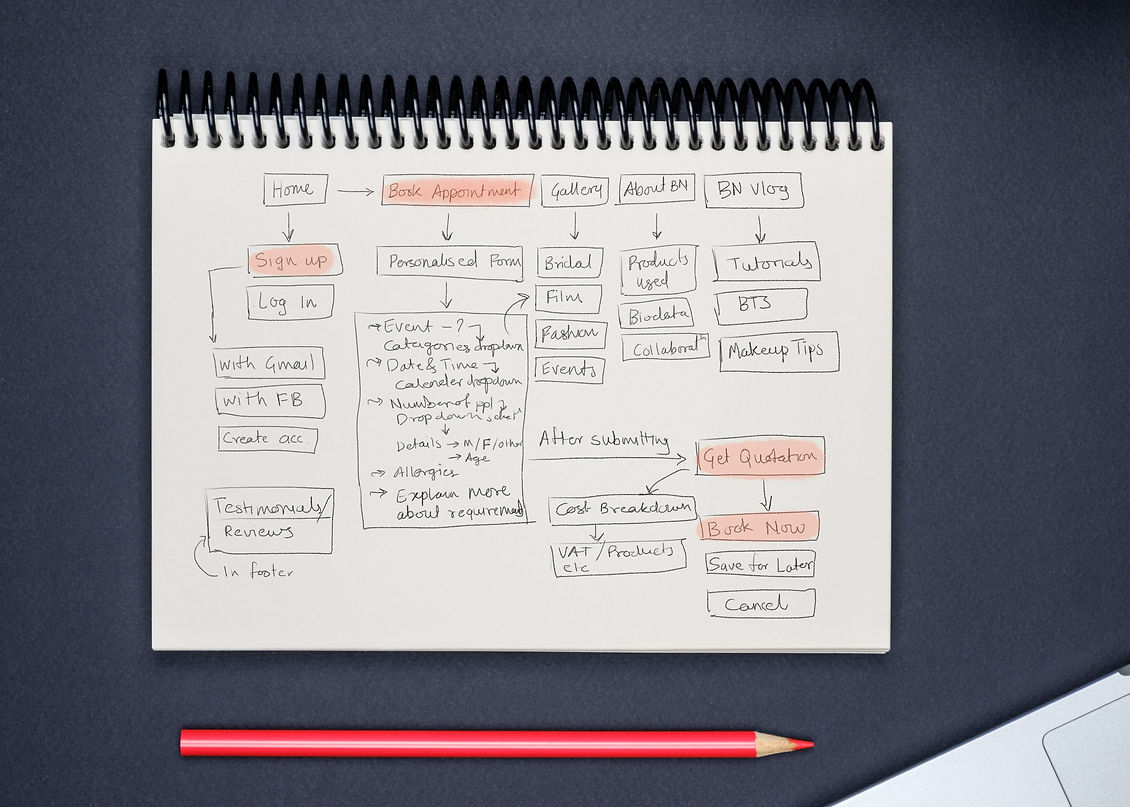 Home
Book Appointment
Gallery
About BN
BN Vlog
Sign up
Log In
with Gmail
with FB
Create acc.
Testimonials/
Reviews
In footer
Personalised Form
Event - ?
Categories dropdown
Date & Time
Calender dropdown
Number of ppl
Dropdown select
Details → M/F/other
→ Age
Allergies
Explain more
about requirement
Bridal
Film
Fashion
Events
Products
used
Biodata
Collaboratn
Tutorials
BTS
Makeup Tips
After submitting
Get Quotation
Cost Breakdown
VAT/Products
etc
Book Now
Save for Later
Cancel